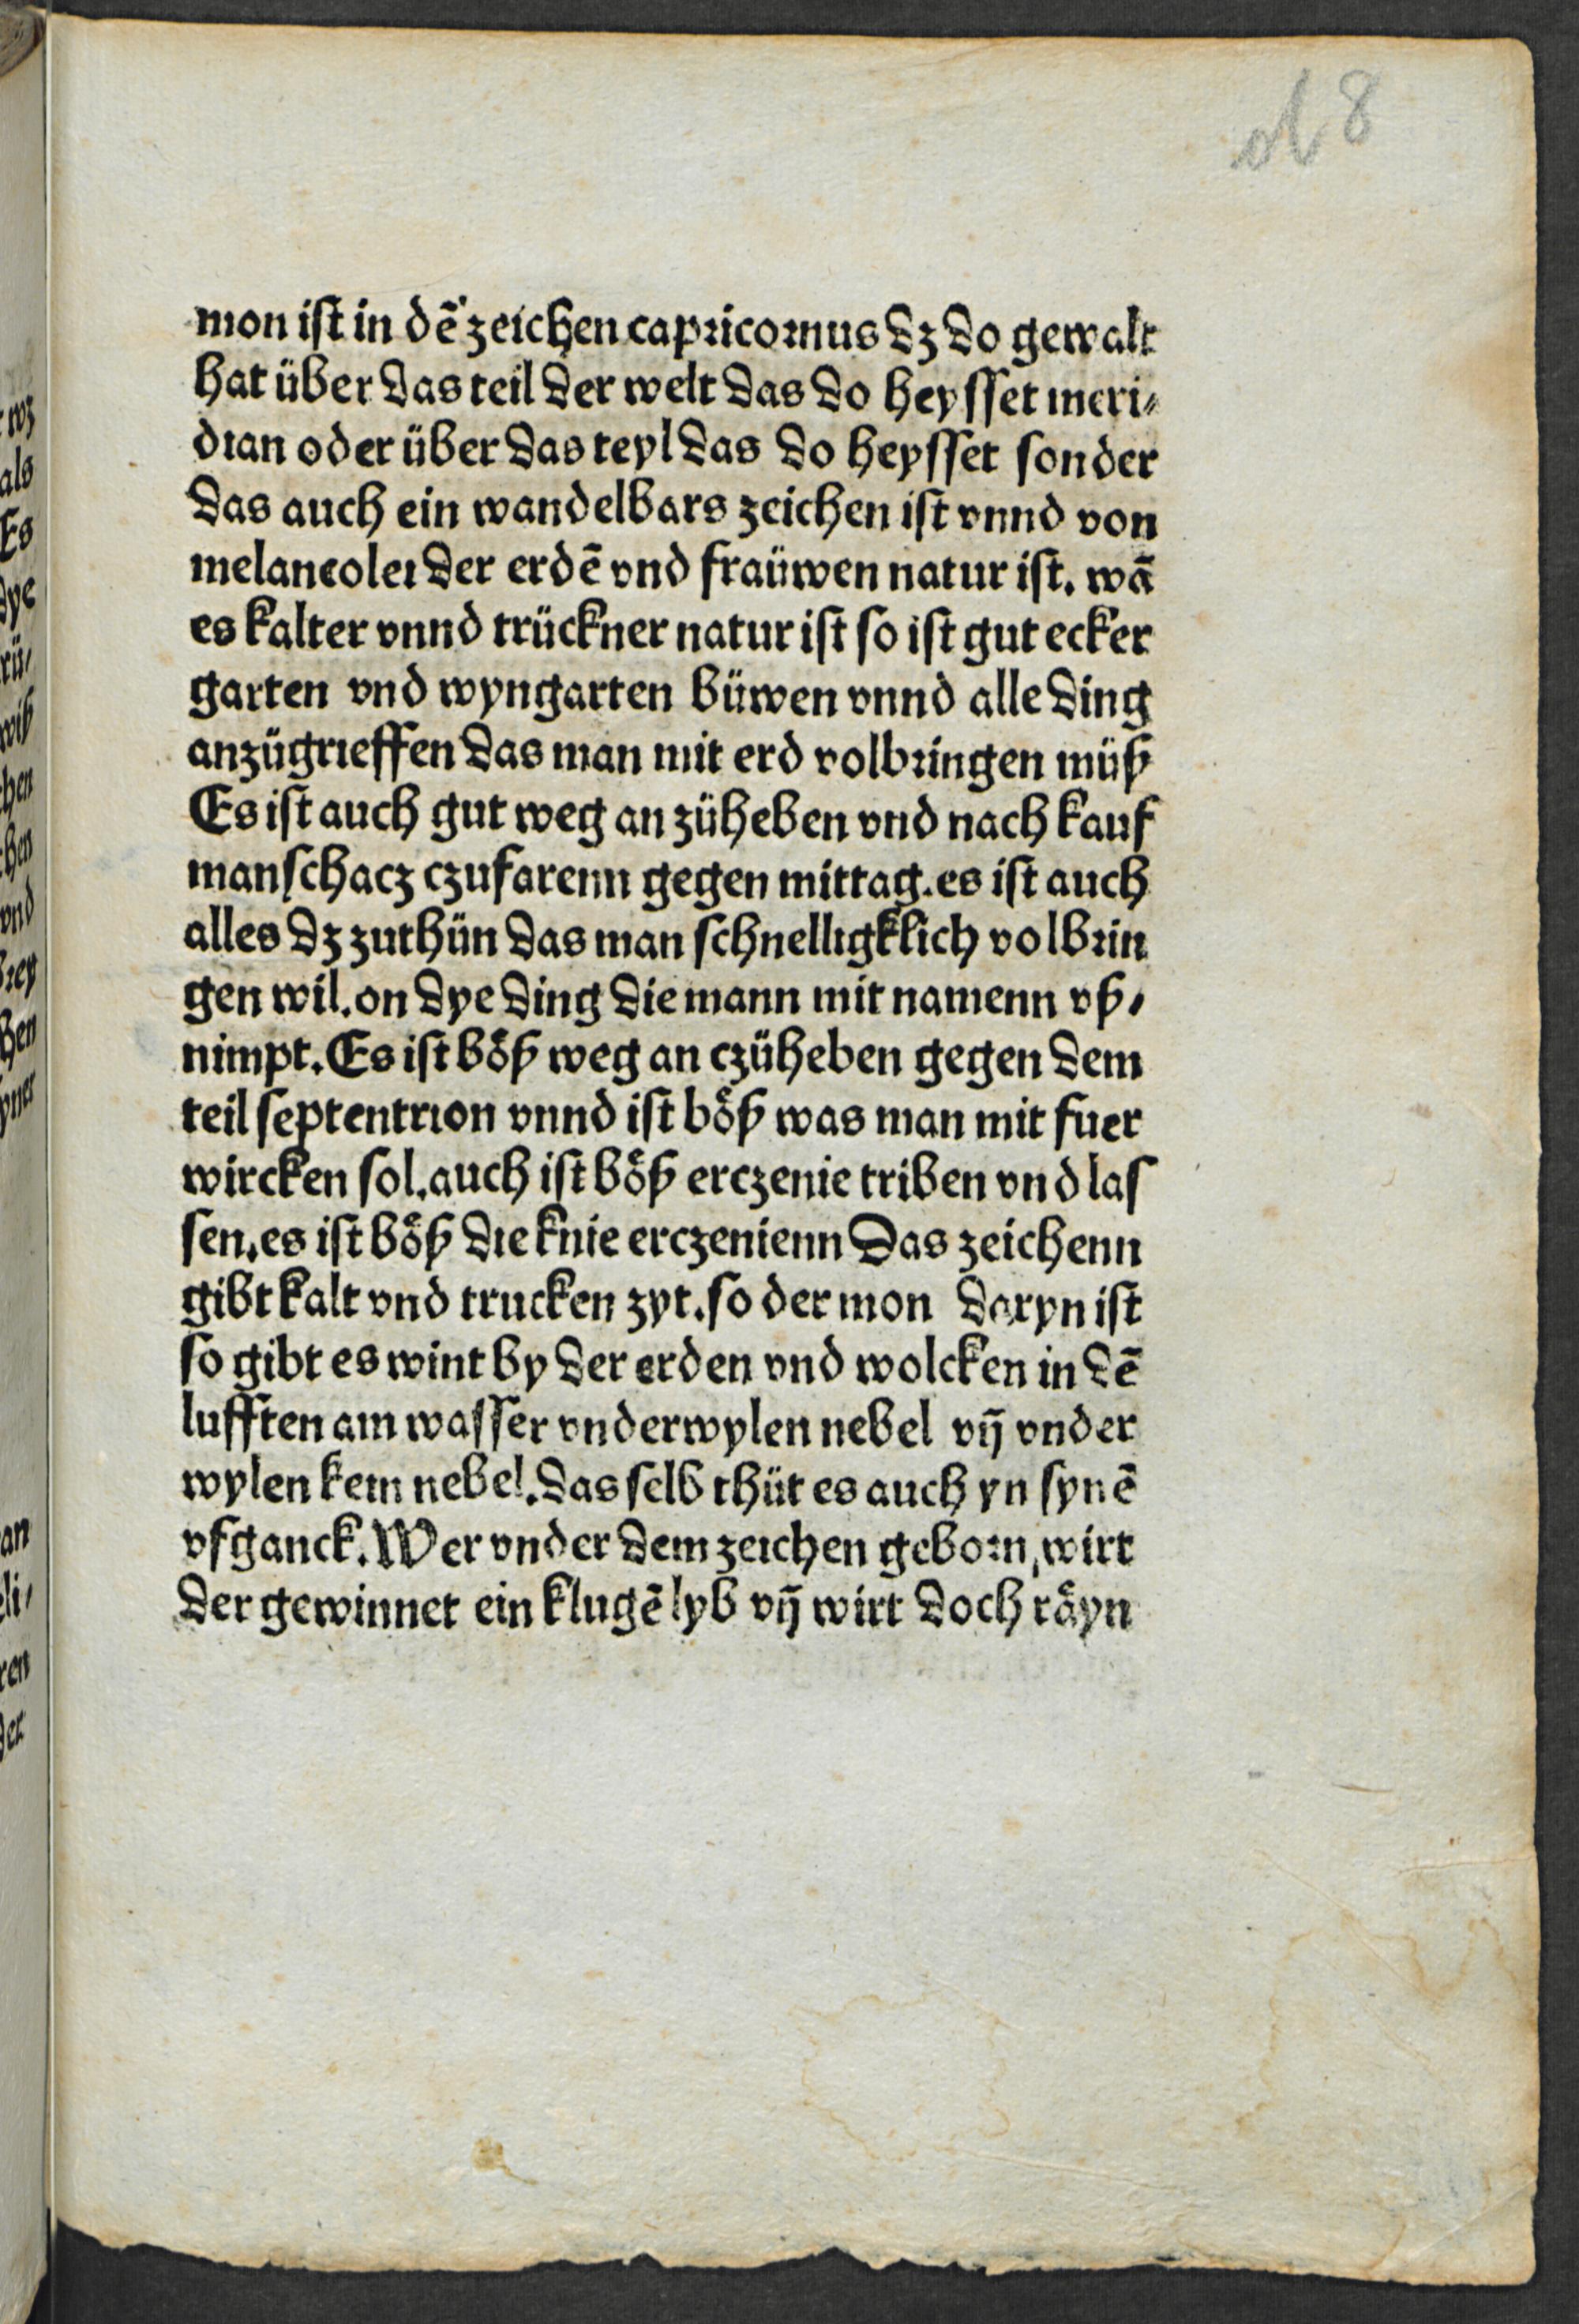 d 8
mon ist in dē zeichen capricornus dz do gewalt
hat über das teil der welt das do heysset meri⸗
dian oder über das teyl das do heysset sonder
das auch ein wandelbars zeichen ist vnnd von
melancolei der erdē vnd fraüwen natur ist. wā
es kalter vnnd trückner natur ist so ist gut ecker
garten vnd wyngarten büwen vnnd alle ding
anzügrieffen das man mit erd volbringen müß
Es ist auch gut weg an züheben vnd nach kauf
manschacz czufarenn gegen mittag. es ist auch
alles dz zuthün das man schnelligklich volbrin
gen wil. on dye ding die mann mit namenn vß⸗
nimpt. Es ist böß weg an czüheben gegen dem
teil septentrion vnnd ist böß was man mit fuer
wircken sol. auch ist böß erczenie triben vnd las
sen. es ist böß die knie erczenienn Das zeichenn
gibt kalt vnd trucken zyt. so der mon daryn ist
so gibt es wint by der erden vnd wolcken in dē
lufften am wasser vnderwylen nebel vn̄ vnder
wylen kein nebel. das selb thüt es auch yn synē
vfganck. Wer vnder dem zeichen geborn wirt
der gewinnet ein klugē lyb vn̄ wirt doch räyn